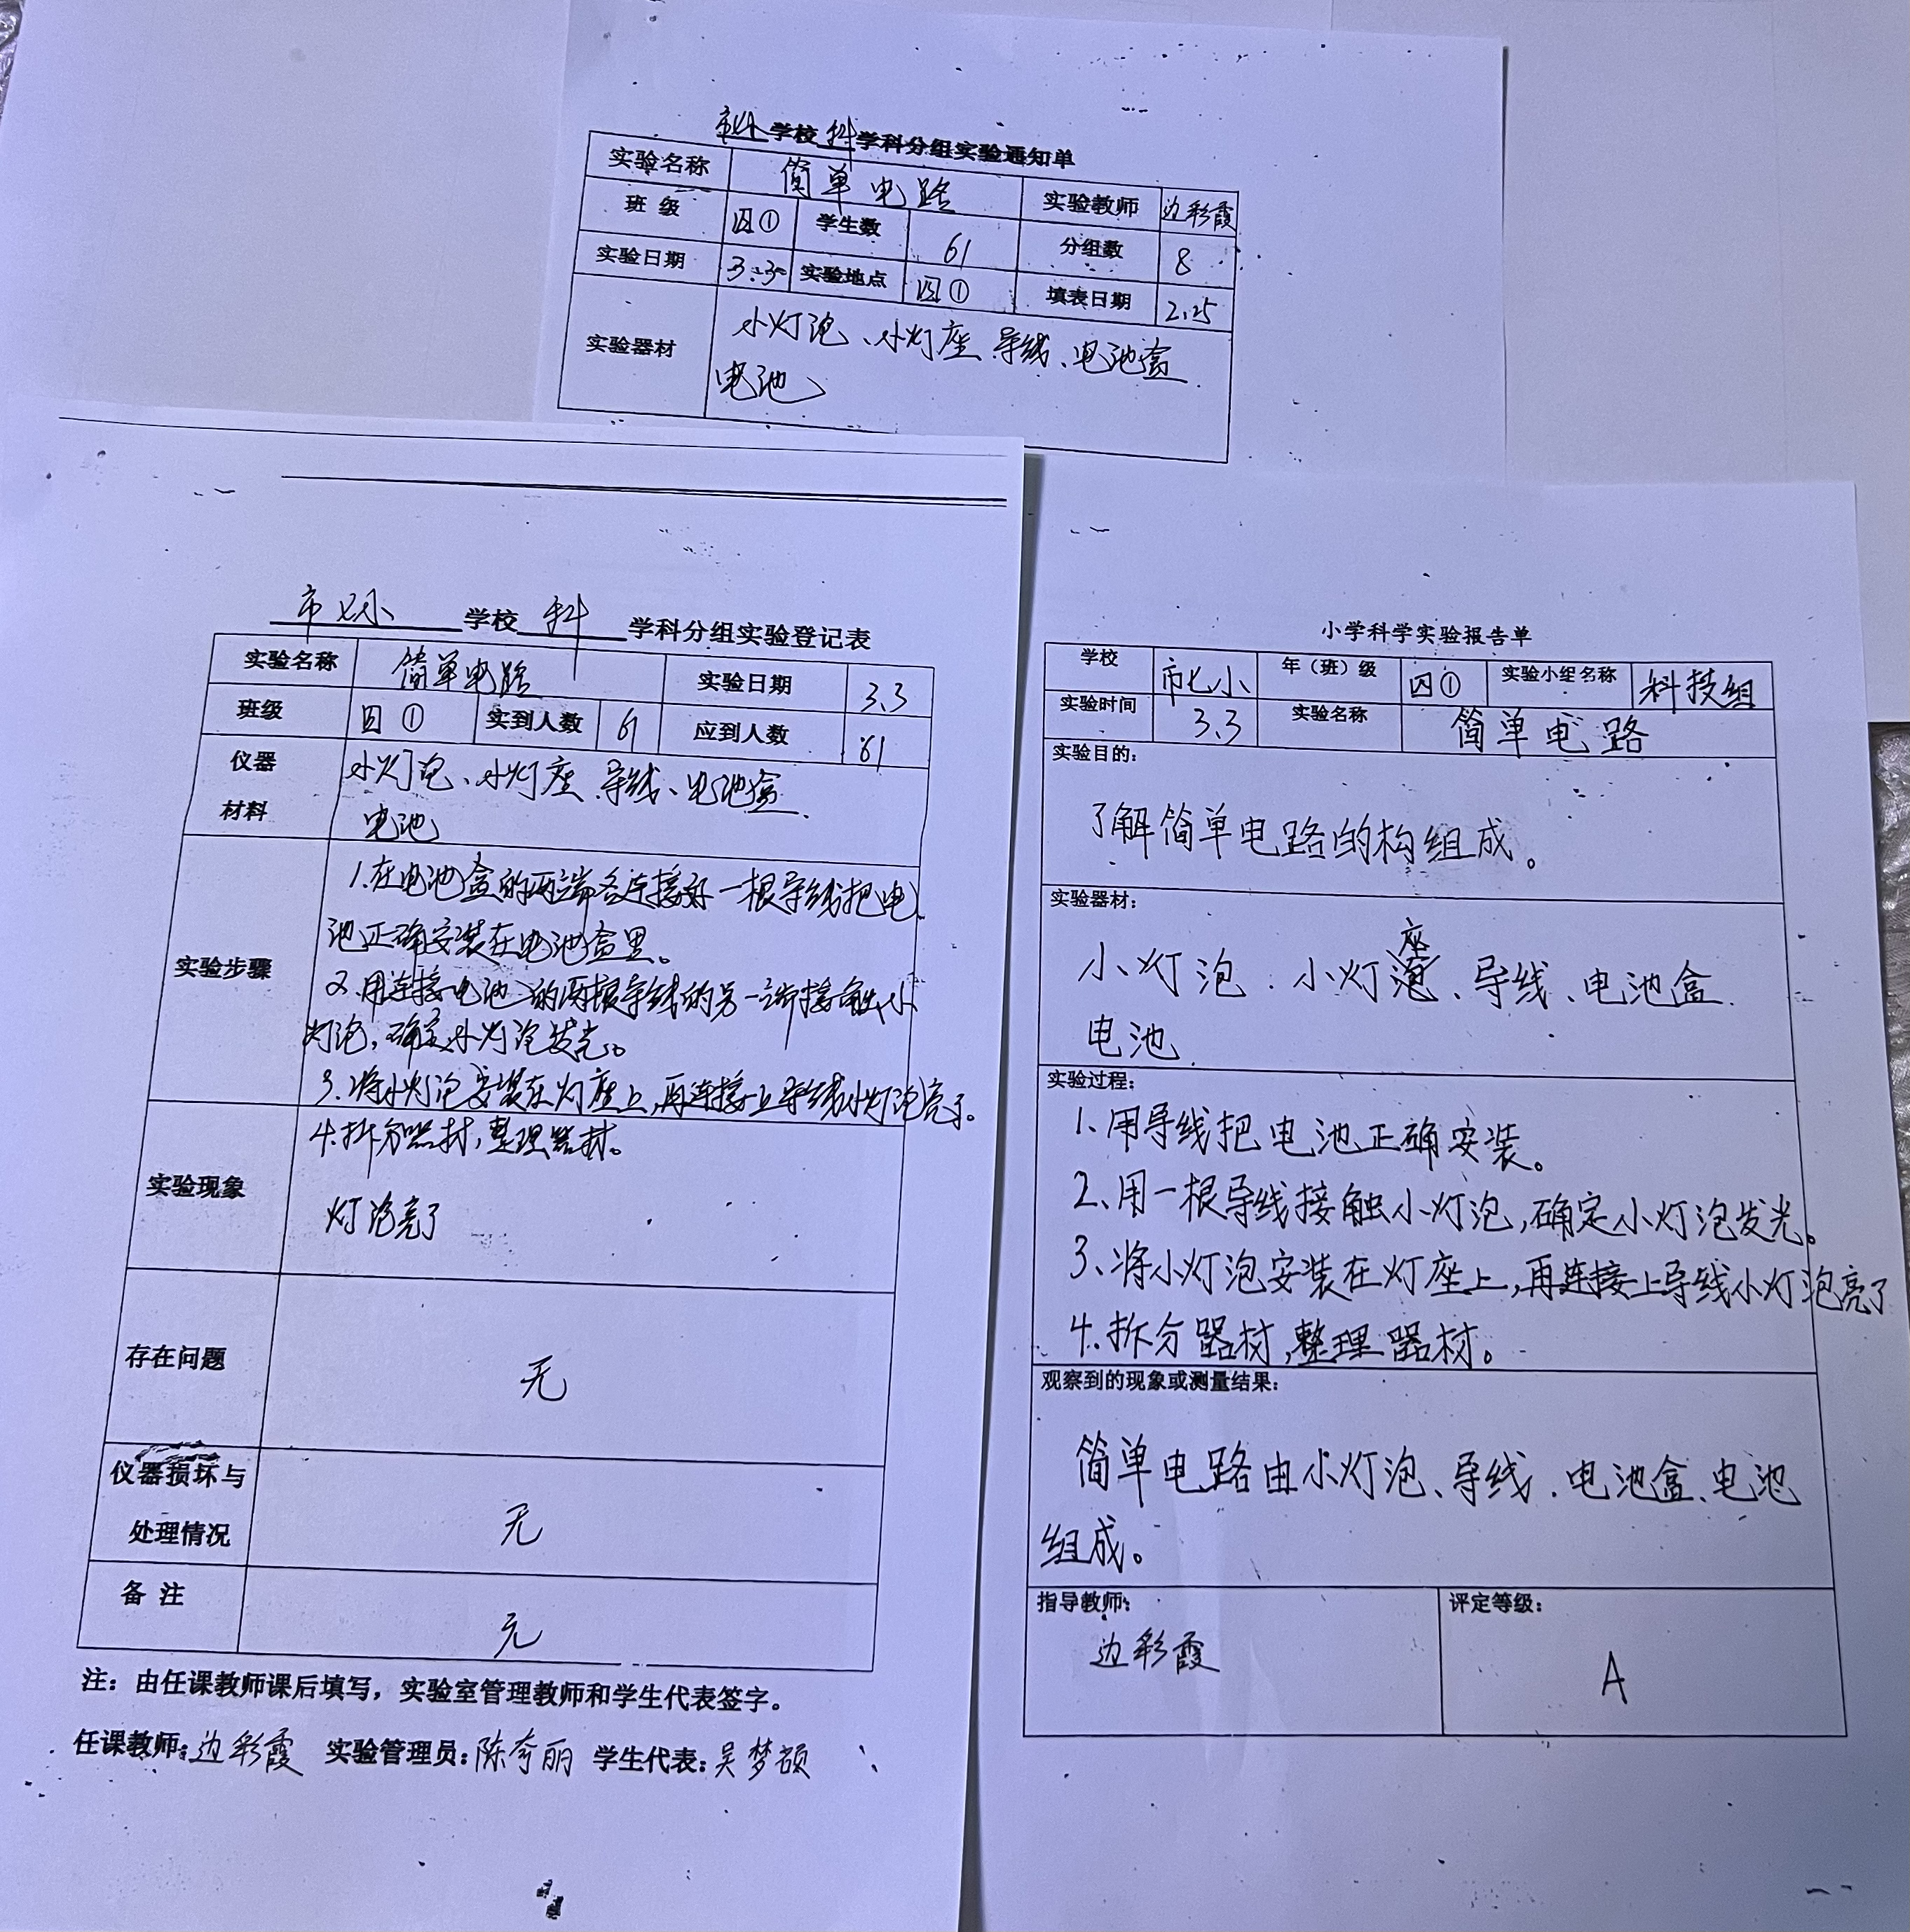 市七小学校科学科分组实验通知单
实验名称 简单电路 实验教师 边彩霞
班 级 四① 学生数 61 分组数 8
实验日期 3.3 实验地点 四① 填表日期 2.25
实验器材 小灯泡、小灯座、导线、电池盒
电池
市七小学校科学科分组实验登记表
实验名称 简单电路 实验日期 3.3
班级 四① 实到人数 61 应到人数 61
仪器材料 小灯泡、小灯座、导线、电池盒
电池
实验步骤
1.在电池盒的两端各连接好一根导线把电
池正确安装在电池盒里。
2.用连接电池的两根导线的另一端接触小
灯泡,确定小灯泡发光。
3.将小灯泡安装在灯座上,再连接上导线小灯泡亮了。
4.拆分器材,整理器材。
实验现象
灯泡亮了
存在问题 无
仪器损坏与
处理情况 无
备 注 无
注:由任课教师课后填写,实验室管理教师和学生代表签字。
任课教师:边彩霞 实验管理员:陈 丽 学生代表:吴梦
小学科学实验报告单
学校 市七小 年(班)级 四① 实验小组名称 科技组
实验时间 3.3 实验名称 简单电路
实验目的:
了解简单电路的构组成。
实验器材:
小灯泡、小灯座、导线、电池盒
电池
实验过程:
1、用导线把电池正确安装。
2、用一根导线接触小灯泡,确定小灯泡发光。
3、将小灯泡安装在灯座上,再连接上导线小灯泡亮了
4.拆分器材,整理器材。
观察到的现象或测量结果:
简单电路由小灯泡、导线、电池盒、电池
组成。
指导教师: 评定等级:
边彩霞 A